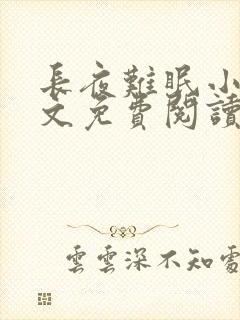 長夜難眠小
文免費閱讀
雲雲深不知處